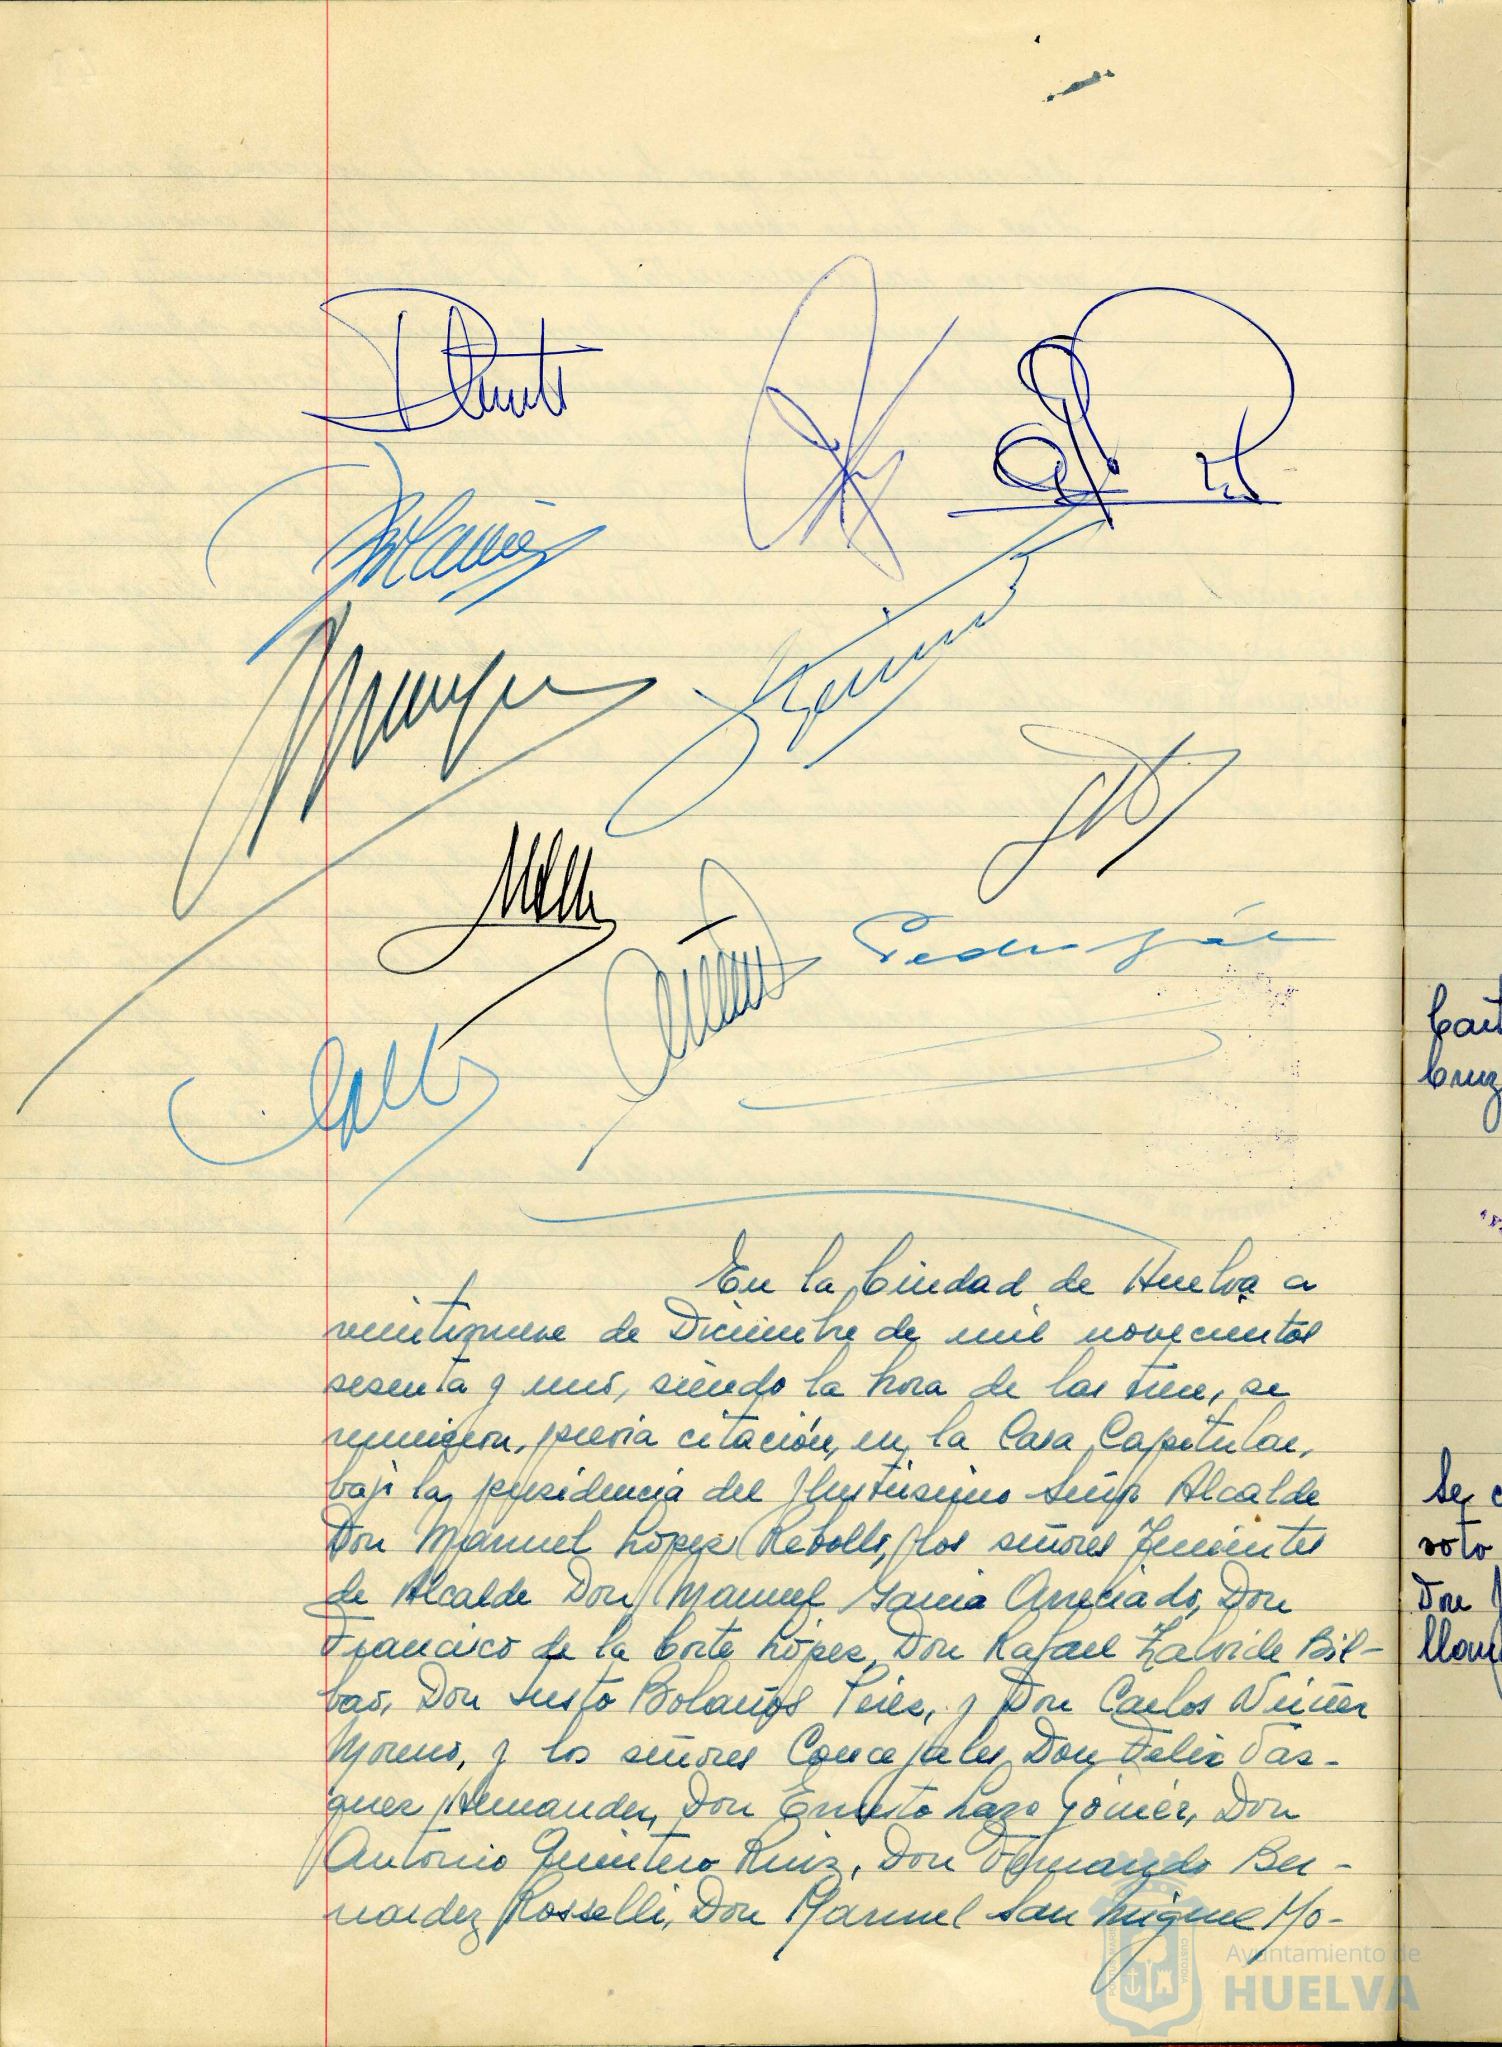 Pedro Gál
En la Ciudad de Huelva a
veintinueve de Diciembre de mil novecientos
sesenta y uno, siendo la hora de las trece, se
reunieron, previa citación, en la Casa Capitular,
bajo la presidencia del Ilustrisimo Señor Alcalde
Don Manuel López Rebollo, los señores Tenientes
de Alcalde Don Manuel Garcia Arreciado, Don
Francisco de la Corte López, Don Rafael Zalvide Bil-
bao, Don Justo Bolaños Pérez, y Don Carlos Núñez
Moreno, y los señores Concejales Don Felix Váz-
quez Hernandez, Don Ernesto Lazo Gómez, Don
Antonio Quintero Ruiz, Don Fernando Ber-
nardez Rosselli, Don Manuel San Miguel Mo-
Cruz
Se
voto
Don
Ayuntamiento de
HUELVA